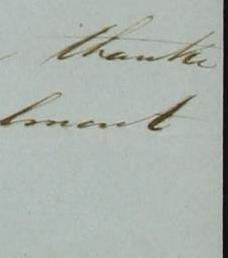 thanks
lmost